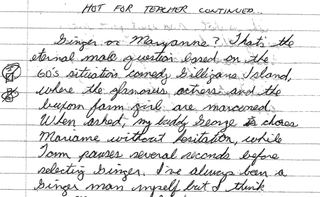 HOT FOR TEACHER CONTINUED...
Ginger or Maryanne? That's the
eternal male question based on the
60's situation comedy Gilligans Island,
where the glamorous actress and the
buxom farm girl are marooned.
When asked, my buddy George chose
Mariame without hesitation, while
Tom pauses several seconds before
selecting Ginger. I've always been a
Ginger man myself but I think